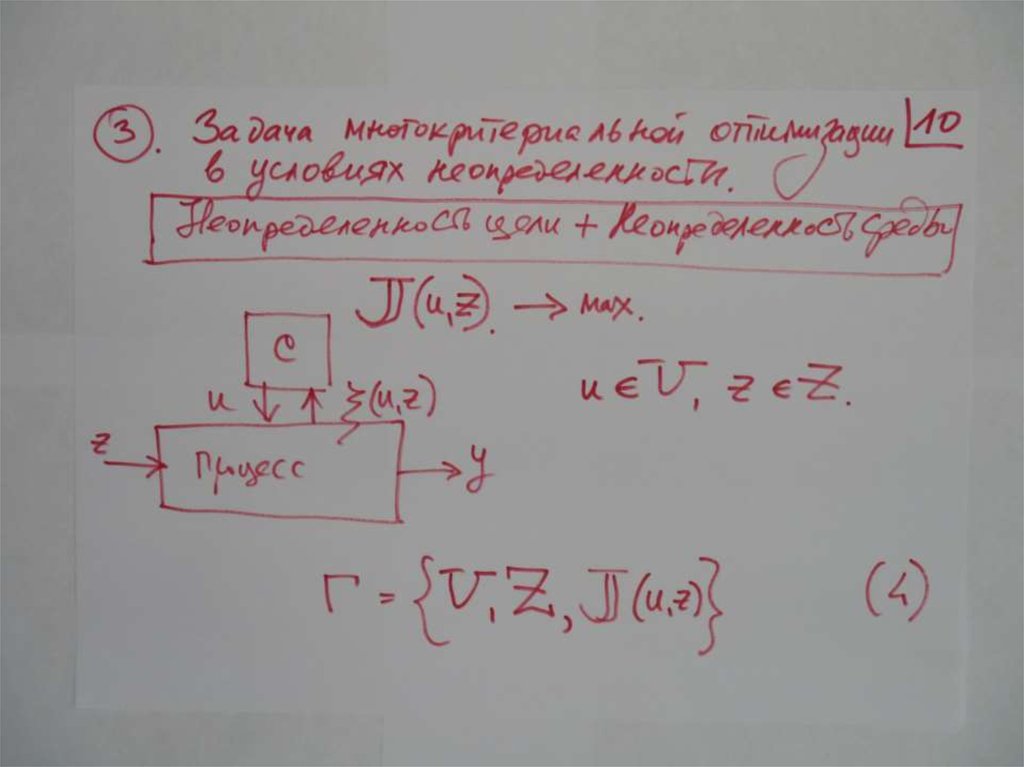 3. Задача многокритериальной оптимизации 10
в условиях неопределенности.
Неопределенность цели + Неопределенность среды
J(u,z). → max.
C
u ∈ U, z ∈ Z.
u ξ(u,z)
z Процесс y
Γ = {U, Z, J(u,z)} (4)